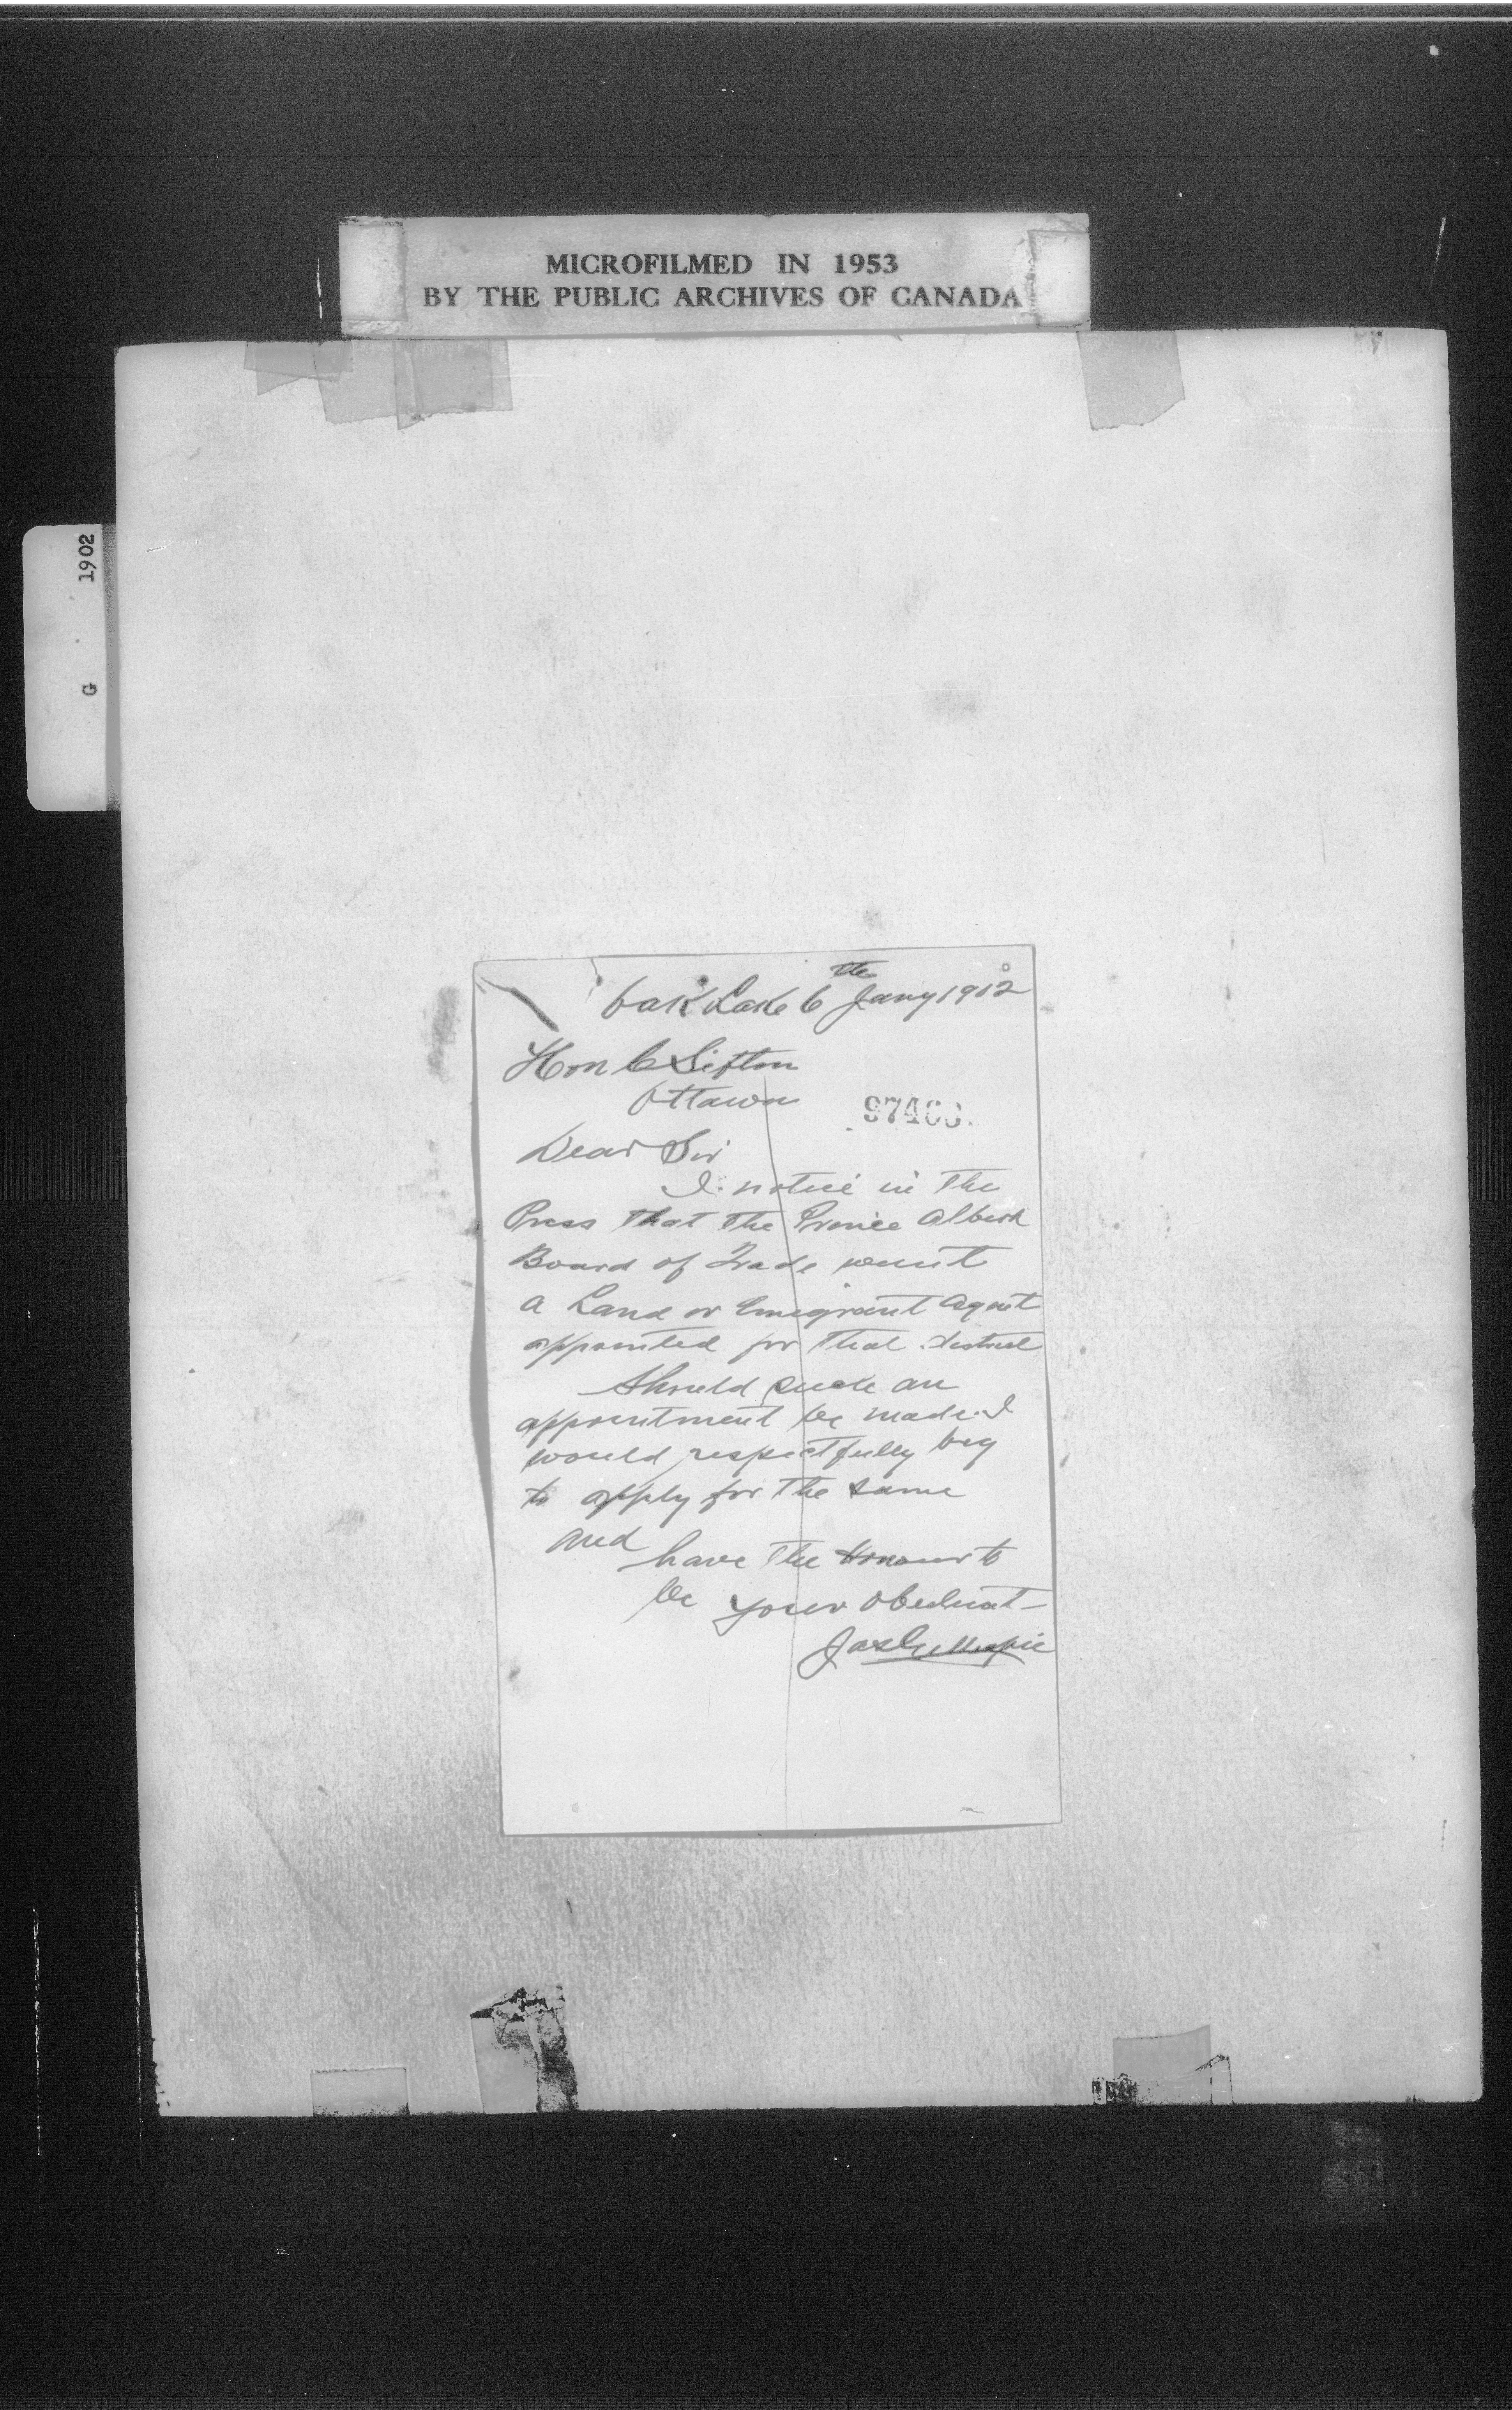 MICROFILMED IN 1953
BY THE PUBLIC ARCHIVES OF CANADA
1902
G
Oak Lake 6th Jany 1902
Hon C Sifton
Ottawa
Dear Sir
I notice in the
Press that the Prince Albert
Board of Trade want
a Land or Emigrant Agent
appointed for that district
Should such an
appointment be made I
would respectfully beg
to apply for the same
and
have the Honour to
be your obedient
Jas Gillespie